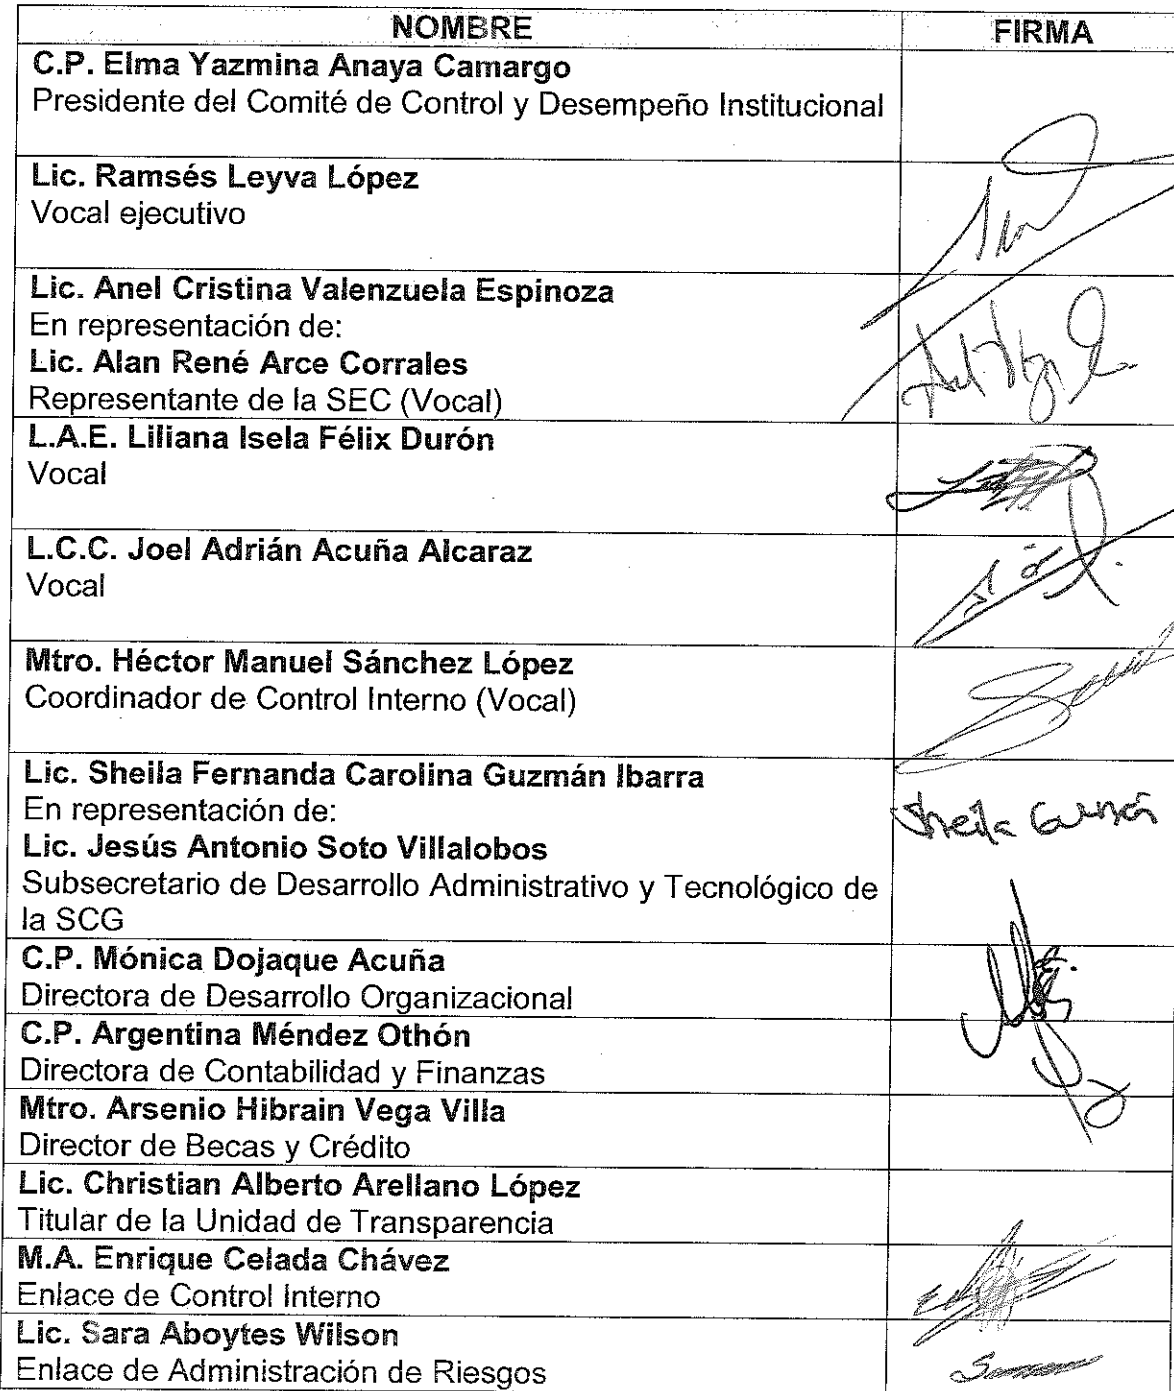 NOMBRE FIRMA
C.P. Elma Yazmina Anaya Camargo
Presidente del Comité de Control y Desempeño Institucional
Lic. Ramsés Leyva López
Vocal ejecutivo
Lic. Anel Cristina Valenzuela Espinoza
En representación de:
Lic. Alan René Arce Corrales
Representante de la SEC (Vocal)
L.A.E. Liliana Isela Félix Durón
Vocal
L.C.C. Joel Adrián Acuña Alcaraz
Vocal
Mtro. Héctor Manuel Sánchez López
Coordinador de Control Interno (Vocal)
Lic. Sheila Fernanda Carolina Guzmán Ibarra
En representación de:
Sheila Guzmán
Lic. Jesús Antonio Soto Villalobos
Subsecretario de Desarrollo Administrativo y Tecnológico de
la SCG
C.P. Mónica Dojaque Acuña
Directora de Desarrollo Organizacional
C.P. Argentina Méndez Othón
Directora de Contabilidad y Finanzas
Mtro. Arsenio Hibrain Vega Villa
Director de Becas y Crédito
Lic. Christian Alberto Arellano López
Titular de la Unidad de Transparencia
M.A. Enrique Celada Chávez
Enlace de Control Interno
Lic. Sara Aboytes Wilson
Enlace de Administración de Riesgos